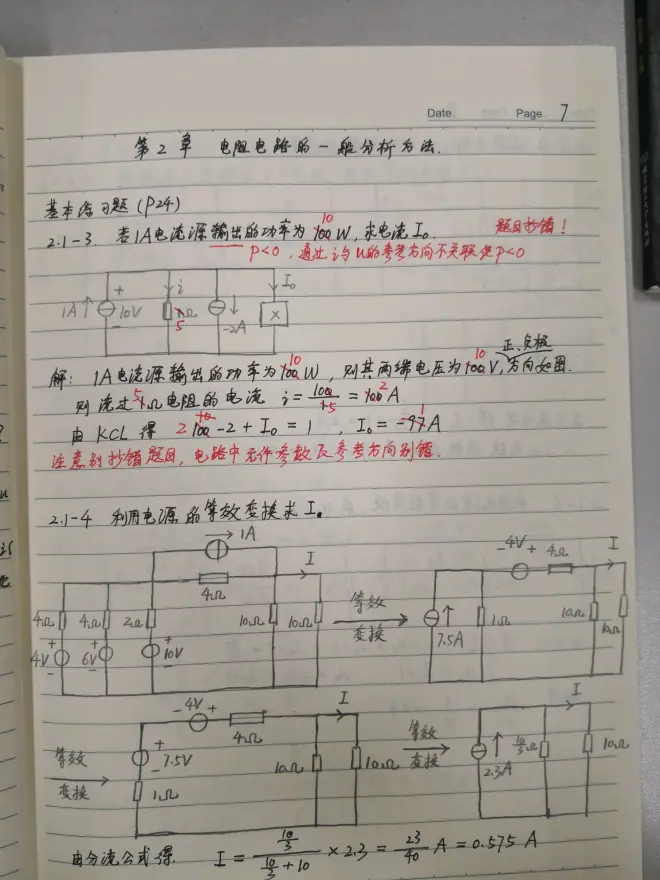 Date. Page. 7
第2章 电阻电路的一般分析方法.
基本练习题(P24)
2.1-3 若1A电流源输出的功率为10W,求电流I₀. 题目抄错!
P<0,通过i与u的参考方向不关联使P<0
1A + 10V - i 5Ω -2A I₀ X
解: 1A电流源输出的功率为10W,则其两端电压为10V,正、负极方向如图.
则流过5Ω电阻的电流 i=10/5=2A.
由KCL得 2-2+I₀=1, I₀=1A
注意别抄错题目,电路中元件参数及参考方向别错.
2.1-4 利用电源的等效变换求I。
1A I 4Ω 4Ω 4Ω 2Ω 10Ω 10Ω + 4V - + 6V - + 10V -
等效变换
-4V+ 4Ω I 7.5A 1Ω 10Ω 10Ω
等效变换
-4V+ 4Ω I + 7.5V - 1Ω 10Ω 10Ω
等效变换
I 2.3A 10/3Ω 10Ω
由分流公式得. I = (10/3)/(10/3+10) × 2.3 = 23/40 A = 0.575 A